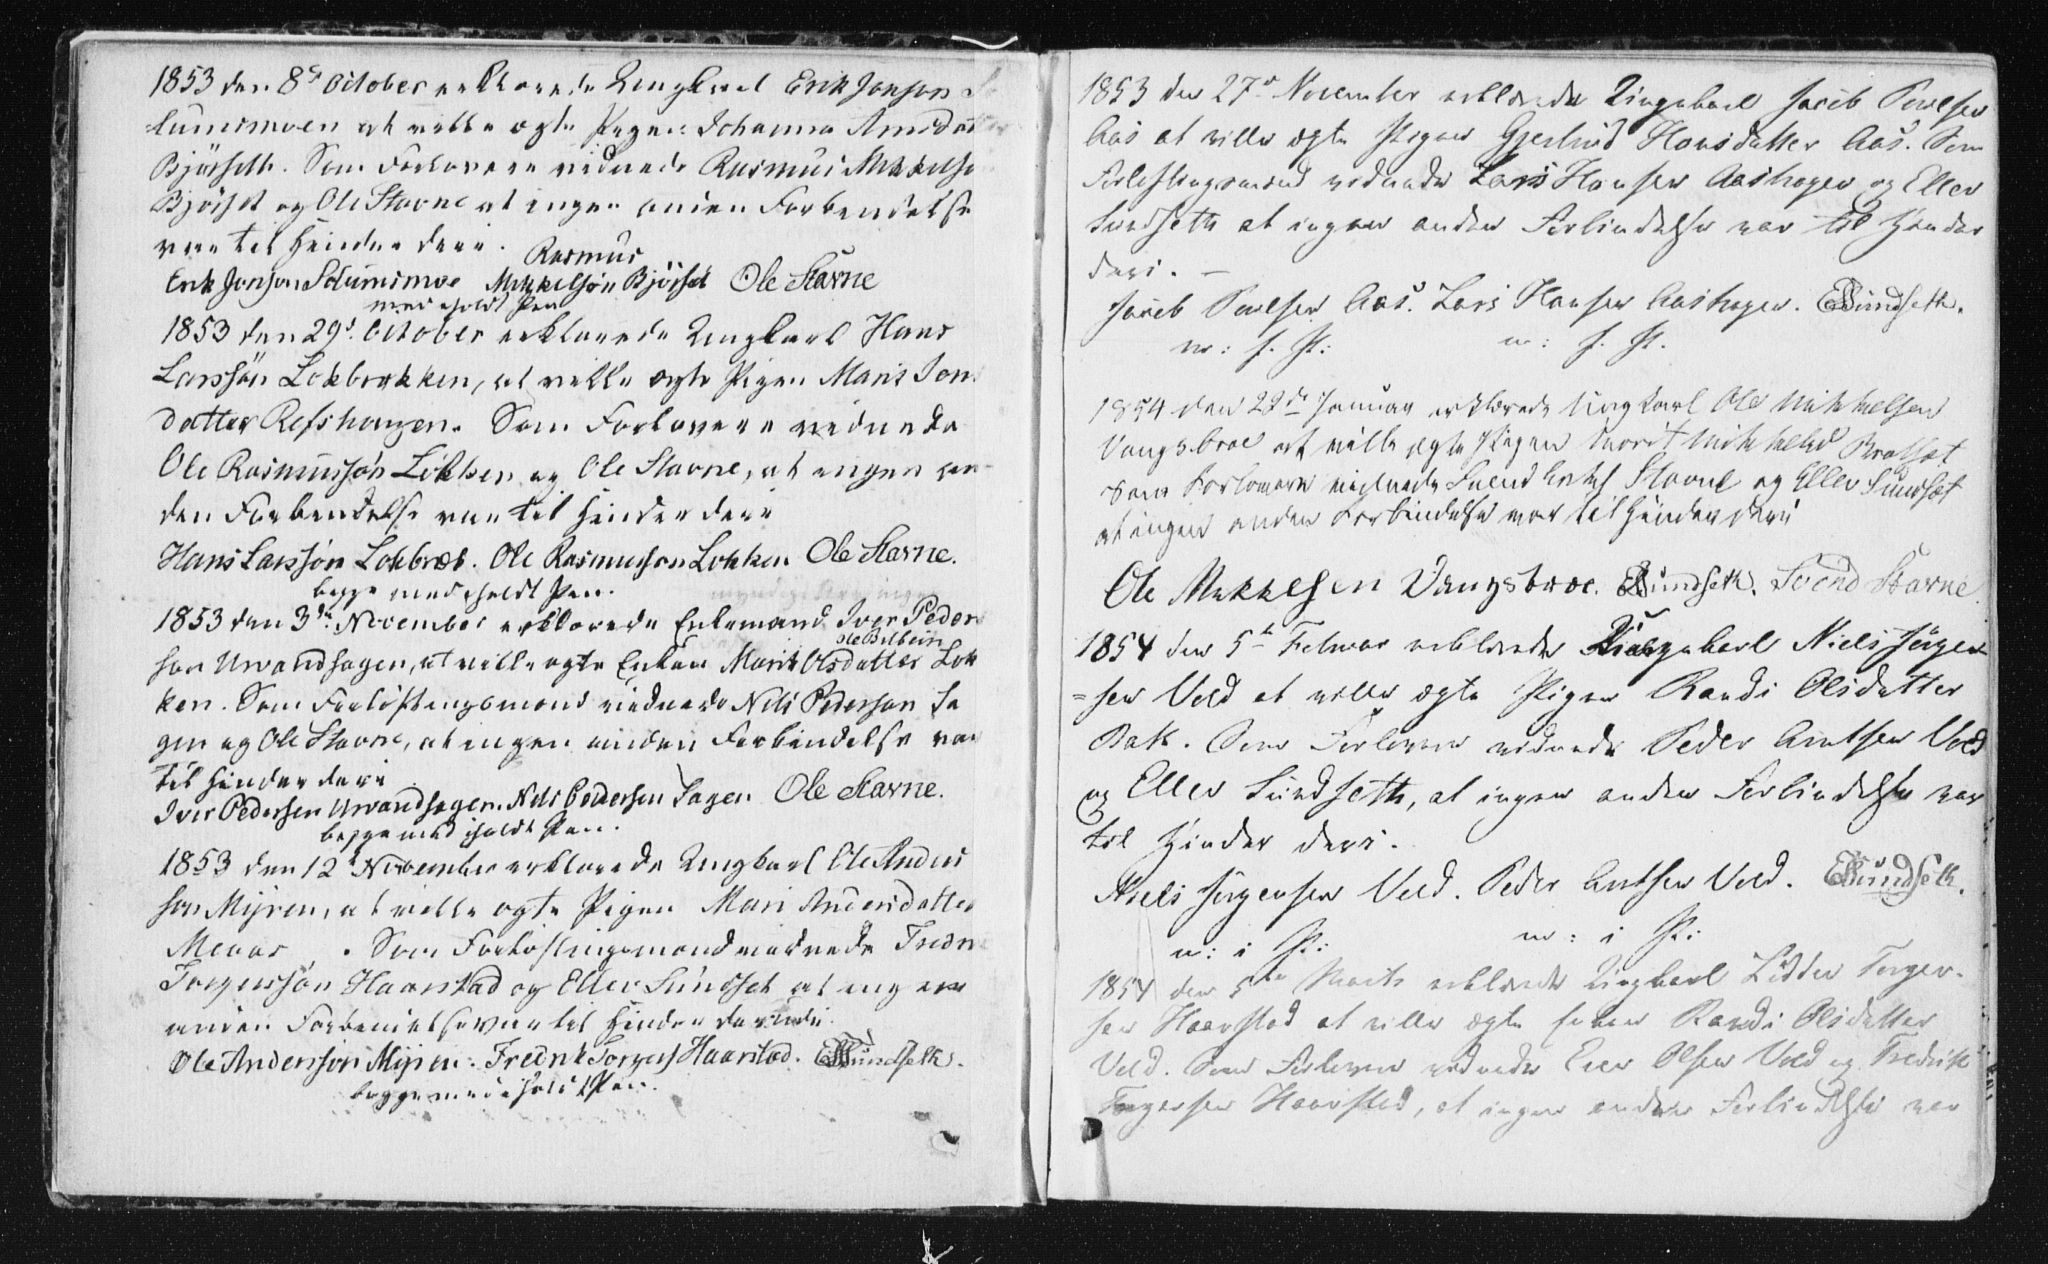 1853 den 8de October erklærede Ungkarl Erik Jonson So
lumsmoen at ville ægte Pigen Johanna Arnsdatter
Bjørseth. Som Forlovere vidnede Rasmus Mikkelse
Bjørset og Ole Stavne at ingen anden Forbendelse
var til Hinder deri.
Rasmus
Erik Jonson Solumsmoe Mikkelsøn Bjørset Ole Stavne
med iholdt Pen
1853 den 29d October erklærede Ungkarl Hans
Larssøn Løkbrækken, at ville ægte Pigen Marit Jons
datter Refshaugen. Som Forlovere vidnede
Ole Rasmussøn Løkken og Ole Stavne, at ingen an-
den Forbendelse var til Hinder deri
Hans Larssøn Løkbræk. Ole Rasmusson Løkken Ole Stavne.
begge med iholdt Pen.
1853 den 3die November erklærede Enkemand Iver Peder
Ole
son Urvandhagen, at ville ægte Enken Marit Olsdatter Løk
ken. Som Forløftingsmænd vidnede Nils Pederson Ha
gen og Ole Stavne, at ingen anden Forbindelse var
til Hinder deri
Iver Pedersen Urvandhagen. Nils Pedersen Hagen Ole Stavne.
begge med iholdt Pen.
1853 den 12t November erklærede Ungkarl Ole Anders
son Myren, at ville ægte Pigen Mari Andersdatter
Meaas. Som Forløftingsmænd vidnede Fredrik
Torgerssøn Haarstad og Eller Sundset at ingen
anden Forbendelse var til Hinder deri
Ole Andersson Myren. Fredrik Torgers Haarstad. ESundseth.
begge med iholdt Pen.
1853 den 27de November erklærede Ungkarl Jacob Povelsen
Aas at ville ægte Pigen Gjertrud Hansdatter Aas. Som
Forløftingsmænd vidnede Lars Hansen Aashagen og Eller
Sundseth at ingen anden Forbindelse var til Hinder
deri. —
Jacob Povelsen Aas. Lars Hansen Aashagen. ESundseth.
m: h. P: m: h. P.
1854 den 22de Januar erklærede Ungkarl Ole Mikkelsen
Vangsbroe at ville ægte Pigen Marit Mikkelsd Bratset
som Forlovere vidnede Svend Stavne og Eller Sundset
at ingen anden Forbindelse var til Hinder deri
Ole Mekkelsen Vangsbroe. ESundseth. Svend Stavne.
1854 den 5te Februar erklærede Ungkarl Niels Jørgen-
=sen Vold at ville ægte Pigen Randi Olsdatter
Bak. Som Forlovere vidnede Peder Arntsen Vold
og Eller Sundseth, at ingen anden Forbindelse var
til Hinder deri.
Niels Jørgensen Vold. Peder Arntsen Vold. ESundseth.
m: i P: m: i P:
1854 den 5te Marts erklærede Ungkarl Torger-
sen Haarstad at ville ægte Randi Olsdatter
Vold. Som Forlovere vidnede Olsen Vold og Fredrik
Torgersen Haarstad, at ingen anden Forbindelse var